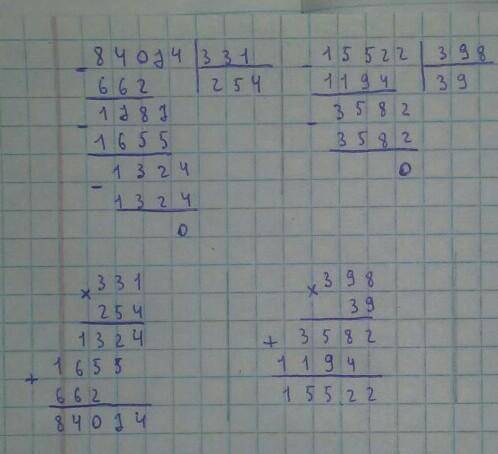 - 84074 | 331
662 | 254
- 1787
1655
- 1324
1324
0
- 15522 | 398
1194 | 39
- 3582
3582
0
× 331
254
1324
+ 1655
662
84074
× 398
39
+ 3582
1194
15522